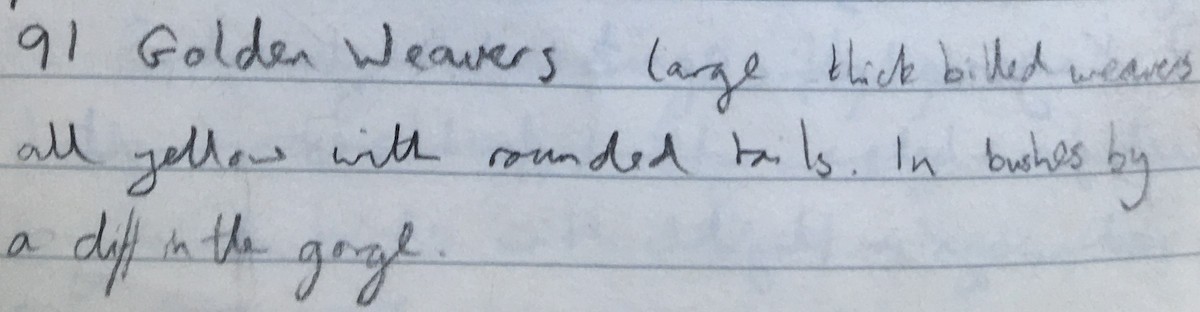 91 Golden Weavers large thick billed weavers
all yellow with rounded tails. In bushes by
a cliff in the gorge.